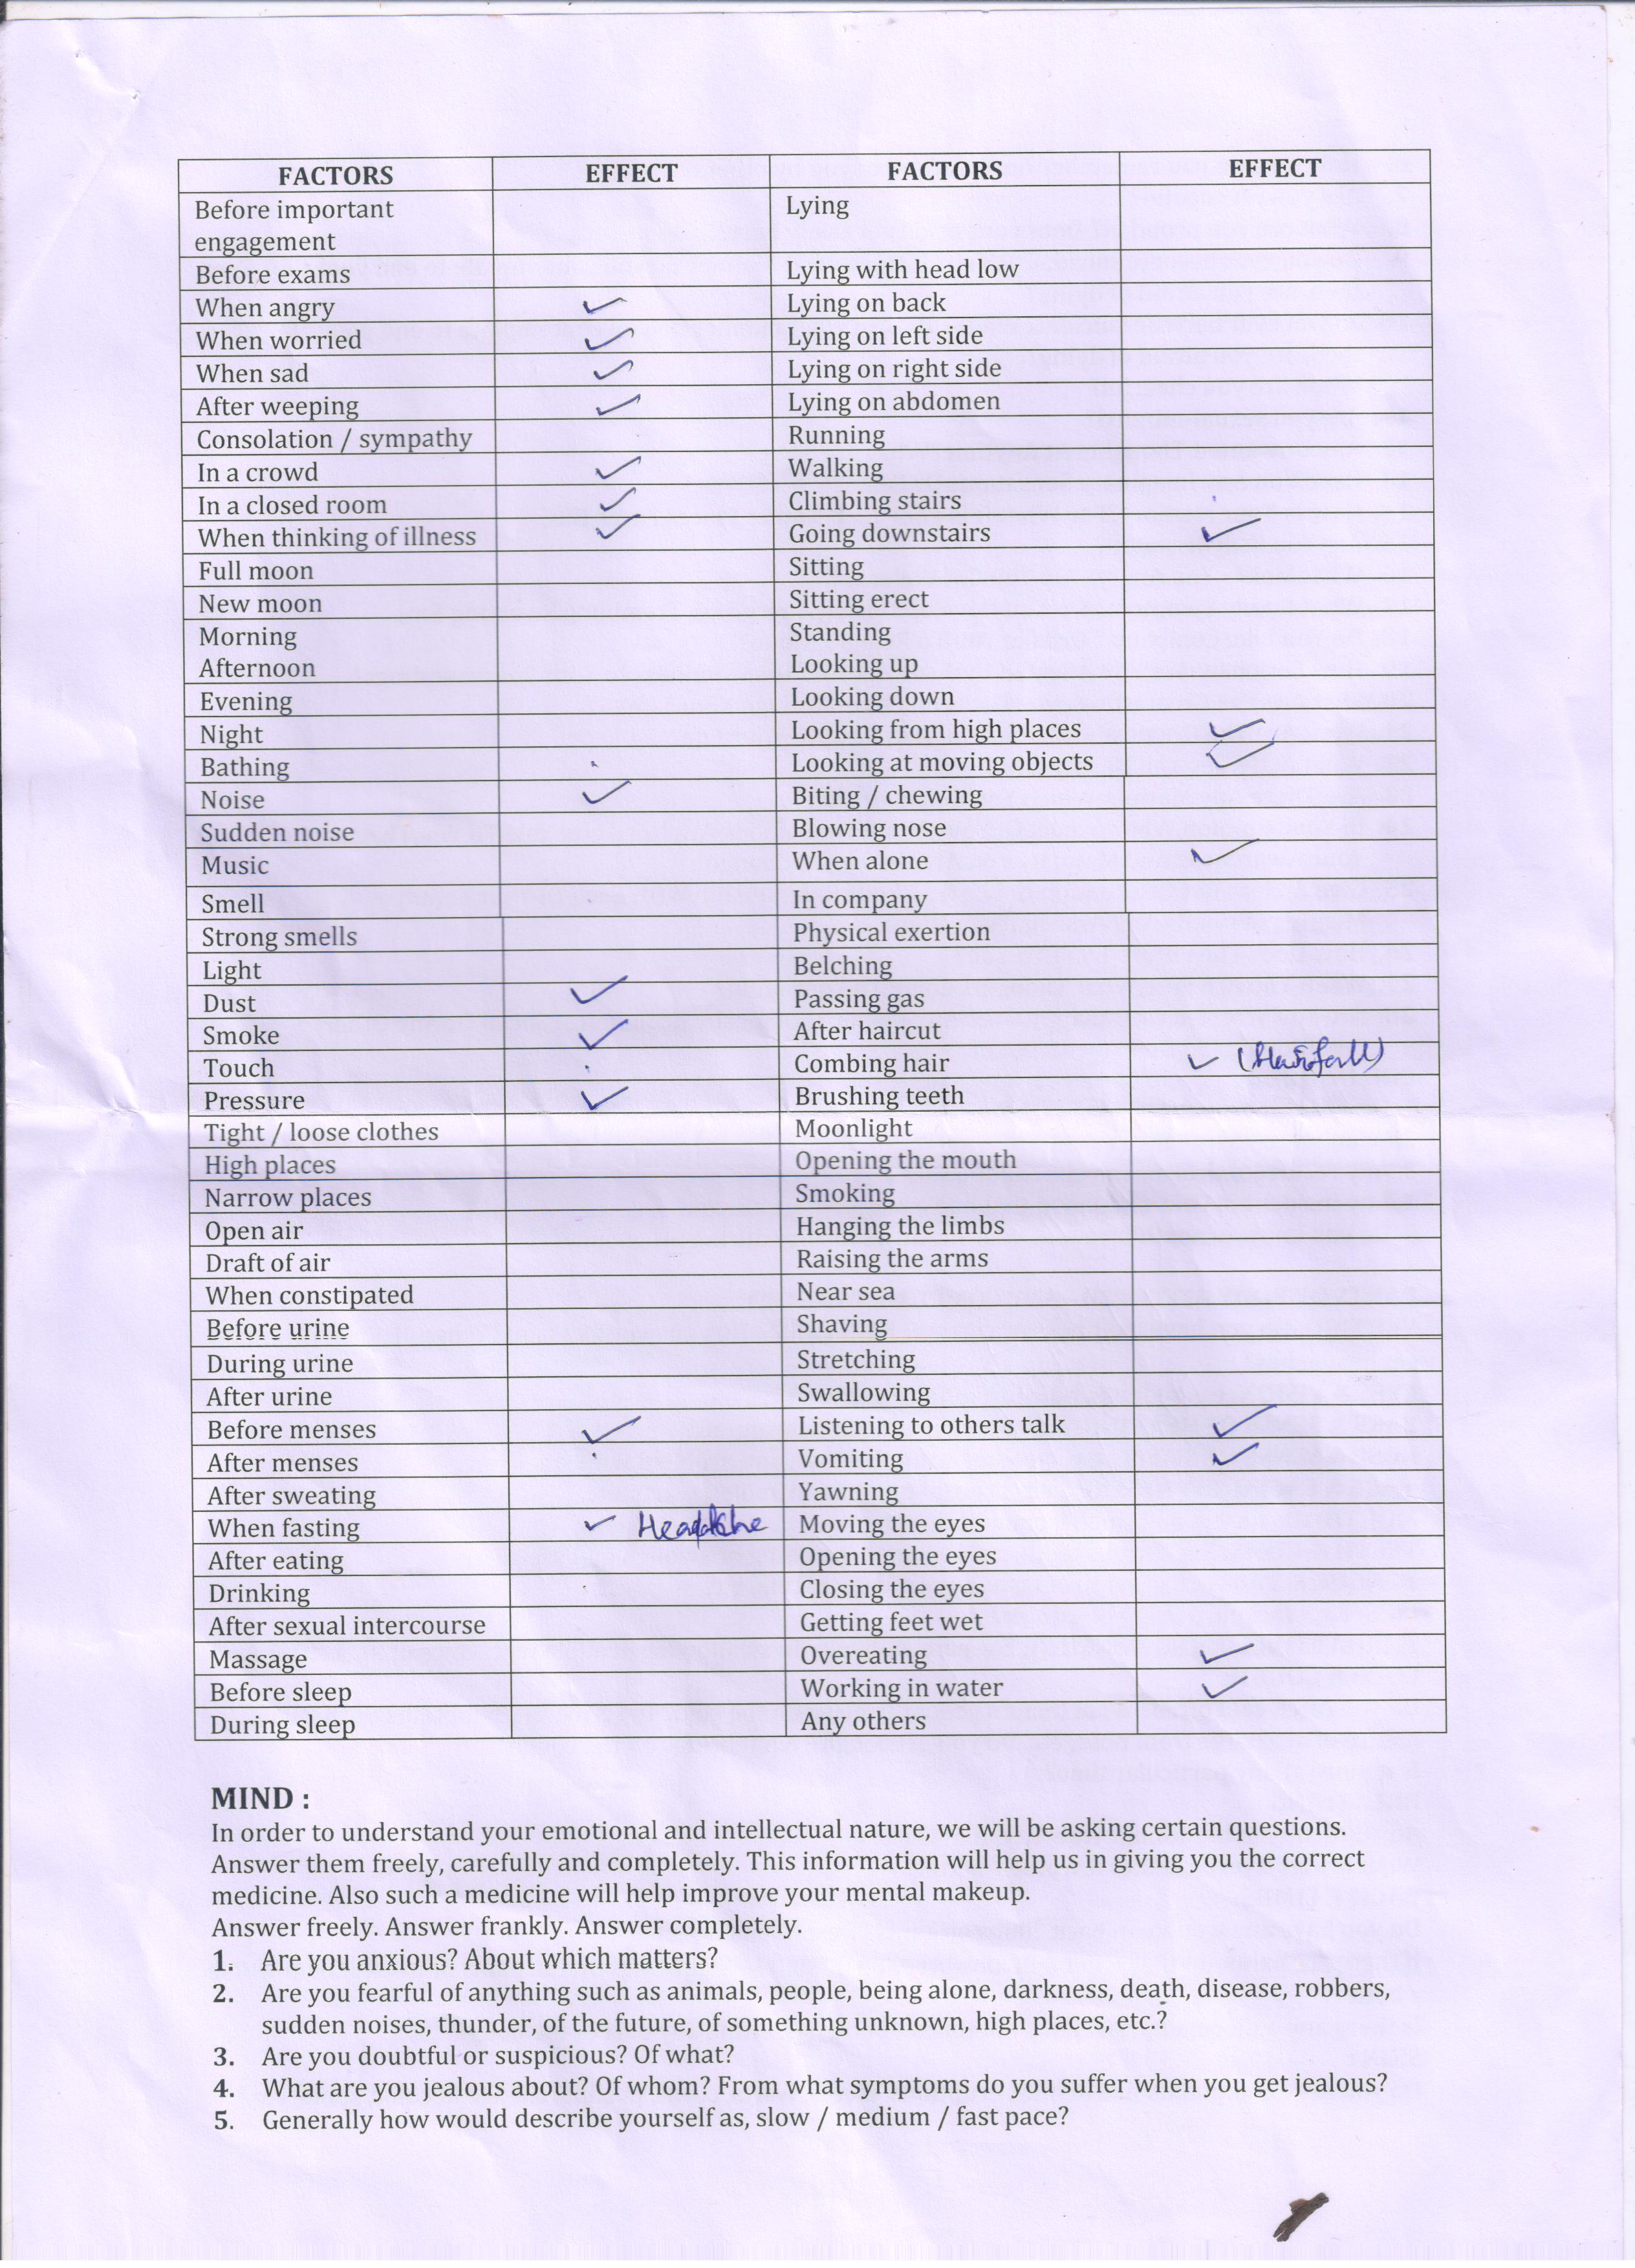 FACTORS EFFECT FACTORS EFFECT
Before important Lying
engagement
Before exams Lying with head low
When angry ✓ Lying on back
When worried ✓ Lying on left side
When sad ✓ Lying on right side
After weeping ✓ Lying on abdomen
Consolation / sympathy Running
In a crowd ✓ Walking
In a closed room ✓ Climbing stairs
When thinking of illness ✓ Going downstairs ✓
Full moon Sitting
New moon Sitting erect
Morning Standing
Afternoon Looking up
Evening Looking down
Night Looking from high places ✓
Bathing Looking at moving objects ✓
Noise ✓ Biting / chewing
Sudden noise Blowing nose
Music When alone ✓
Smell In company
Strong smells Physical exertion
Light Belching
Dust ✓ Passing gas
Smoke ✓ After haircut
Touch Combing hair ✓ (Hairfall)
Pressure ✓ Brushing teeth
Tight / loose clothes Moonlight
High places Opening the mouth
Narrow places Smoking
Open air Hanging the limbs
Draft of air Raising the arms
When constipated Near sea
Before urine Shaving
During urine Stretching
After urine Swallowing
Before menses ✓ Listening to others talk ✓
After menses Vomiting ✓
After sweating Yawning
When fasting ✓ Headache Moving the eyes
After eating Opening the eyes
Drinking Closing the eyes
After sexual intercourse Getting feet wet
Massage Overeating ✓
Before sleep Working in water ✓
During sleep Any others
MIND :
In order to understand your emotional and intellectual nature, we will be asking certain questions.
Answer them freely, carefully and completely. This information will help us in giving you the correct
medicine. Also such a medicine will help improve your mental makeup.
Answer freely. Answer frankly. Answer completely.
1. Are you anxious? About which matters?
2. Are you fearful of anything such as animals, people, being alone, darkness, death, disease, robbers,
sudden noises, thunder, of the future, of something unknown, high places, etc.?
3. Are you doubtful or suspicious? Of what?
4. What are you jealous about? Of whom? From what symptoms do you suffer when you get jealous?
5. Generally how would describe yourself as, slow / medium / fast pace?